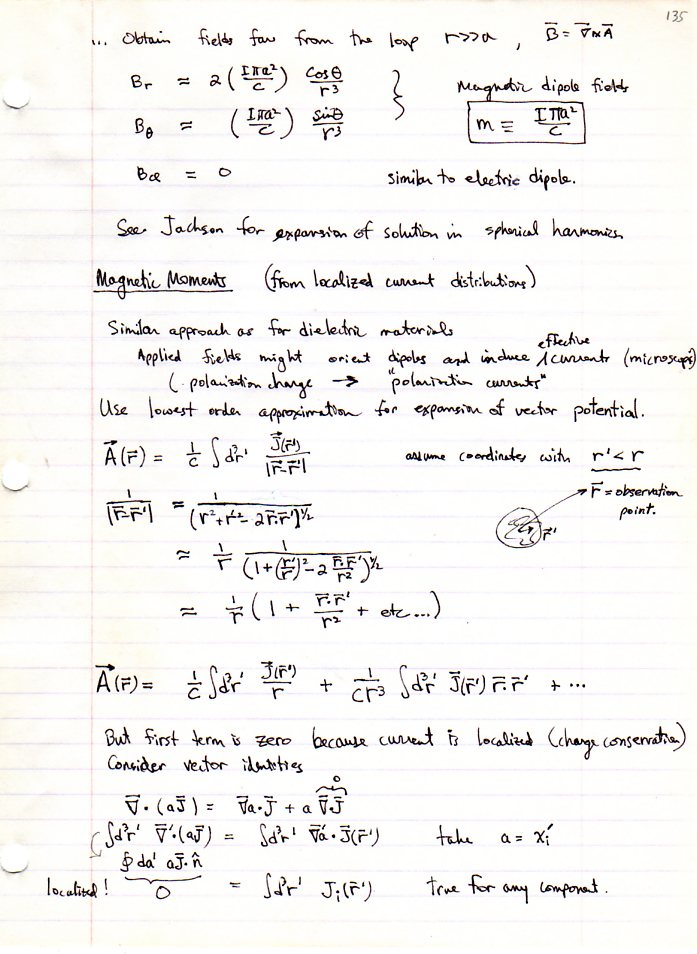 135
... Obtain fields far from the loop r>>a , B⃗ = ∇⃗×A⃗
B_r ≈ 2 (Iπa²/c) cosθ/r³
Magnetic dipole fields
B_θ ≈ (Iπa²/c) sinθ/r³
m ≡ Iπa²/c
B_φ = 0 similar to electric dipole.
See Jackson for expansion of solution in spherical harmonics
Magnetic Moments (from localized current distributions)
Similar approach as for dielectric materials
Applied fields might orient dipoles and induce effective currents (microscopic)
(. polarization charge → "polarization currents"
Use lowest order approximation for expansion of vector potential.
A⃗(r̄) = 1/c ∫d³r' J̄(r̄')/|r̄-r̄'| assume coordinates with r' < r
r̄ = observation point.
r̄'
1/|r̄-r̄'| = 1/(r²+r'²- 2r̄·r̄')^½
≈ 1/r 1/(1+(r'/r)²-2 r̄·r̄'/r²)^½
≈ 1/r (1 + r̄·r̄'/r² + etc...)
A⃗(r̄) = 1/c ∫d³r' J̄(r̄')/r + 1/cr³ ∫d³r' J̄(r̄') r̄·r̄' + ...
But first term is zero because current is localized (charge conservation)
Consider vector identities
0
∇̄·(aJ̄) = ∇̄a·J̄ + a ∇̄·J̄
∫d³r' ∇̄'·(aJ̄) = ∫d³r' ∇̄a'·J̄(r̄') take a = x_i'
∮da' aJ̄·n̂
localized! 0 = ∫d³r' J_i(r̄') true for any component.